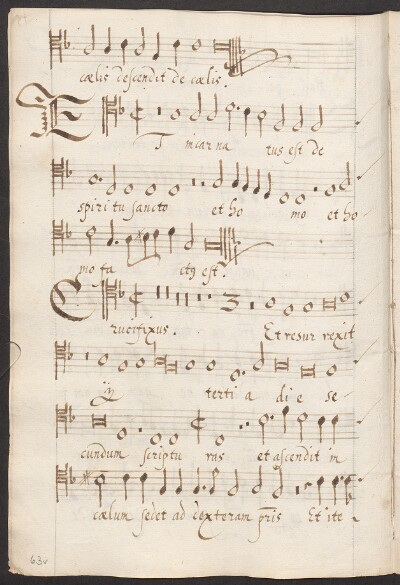 cælis descendit de cælis.
ET incarna tus est de
spiritu sancto et ho mo et ho
mo fa ctꝰ est.
Crucifixus. Et resur rexit
ij terti a di e se
cundum scriptu ras et ascendit in
cælum sedet ad dexteram pris Et ite
63v